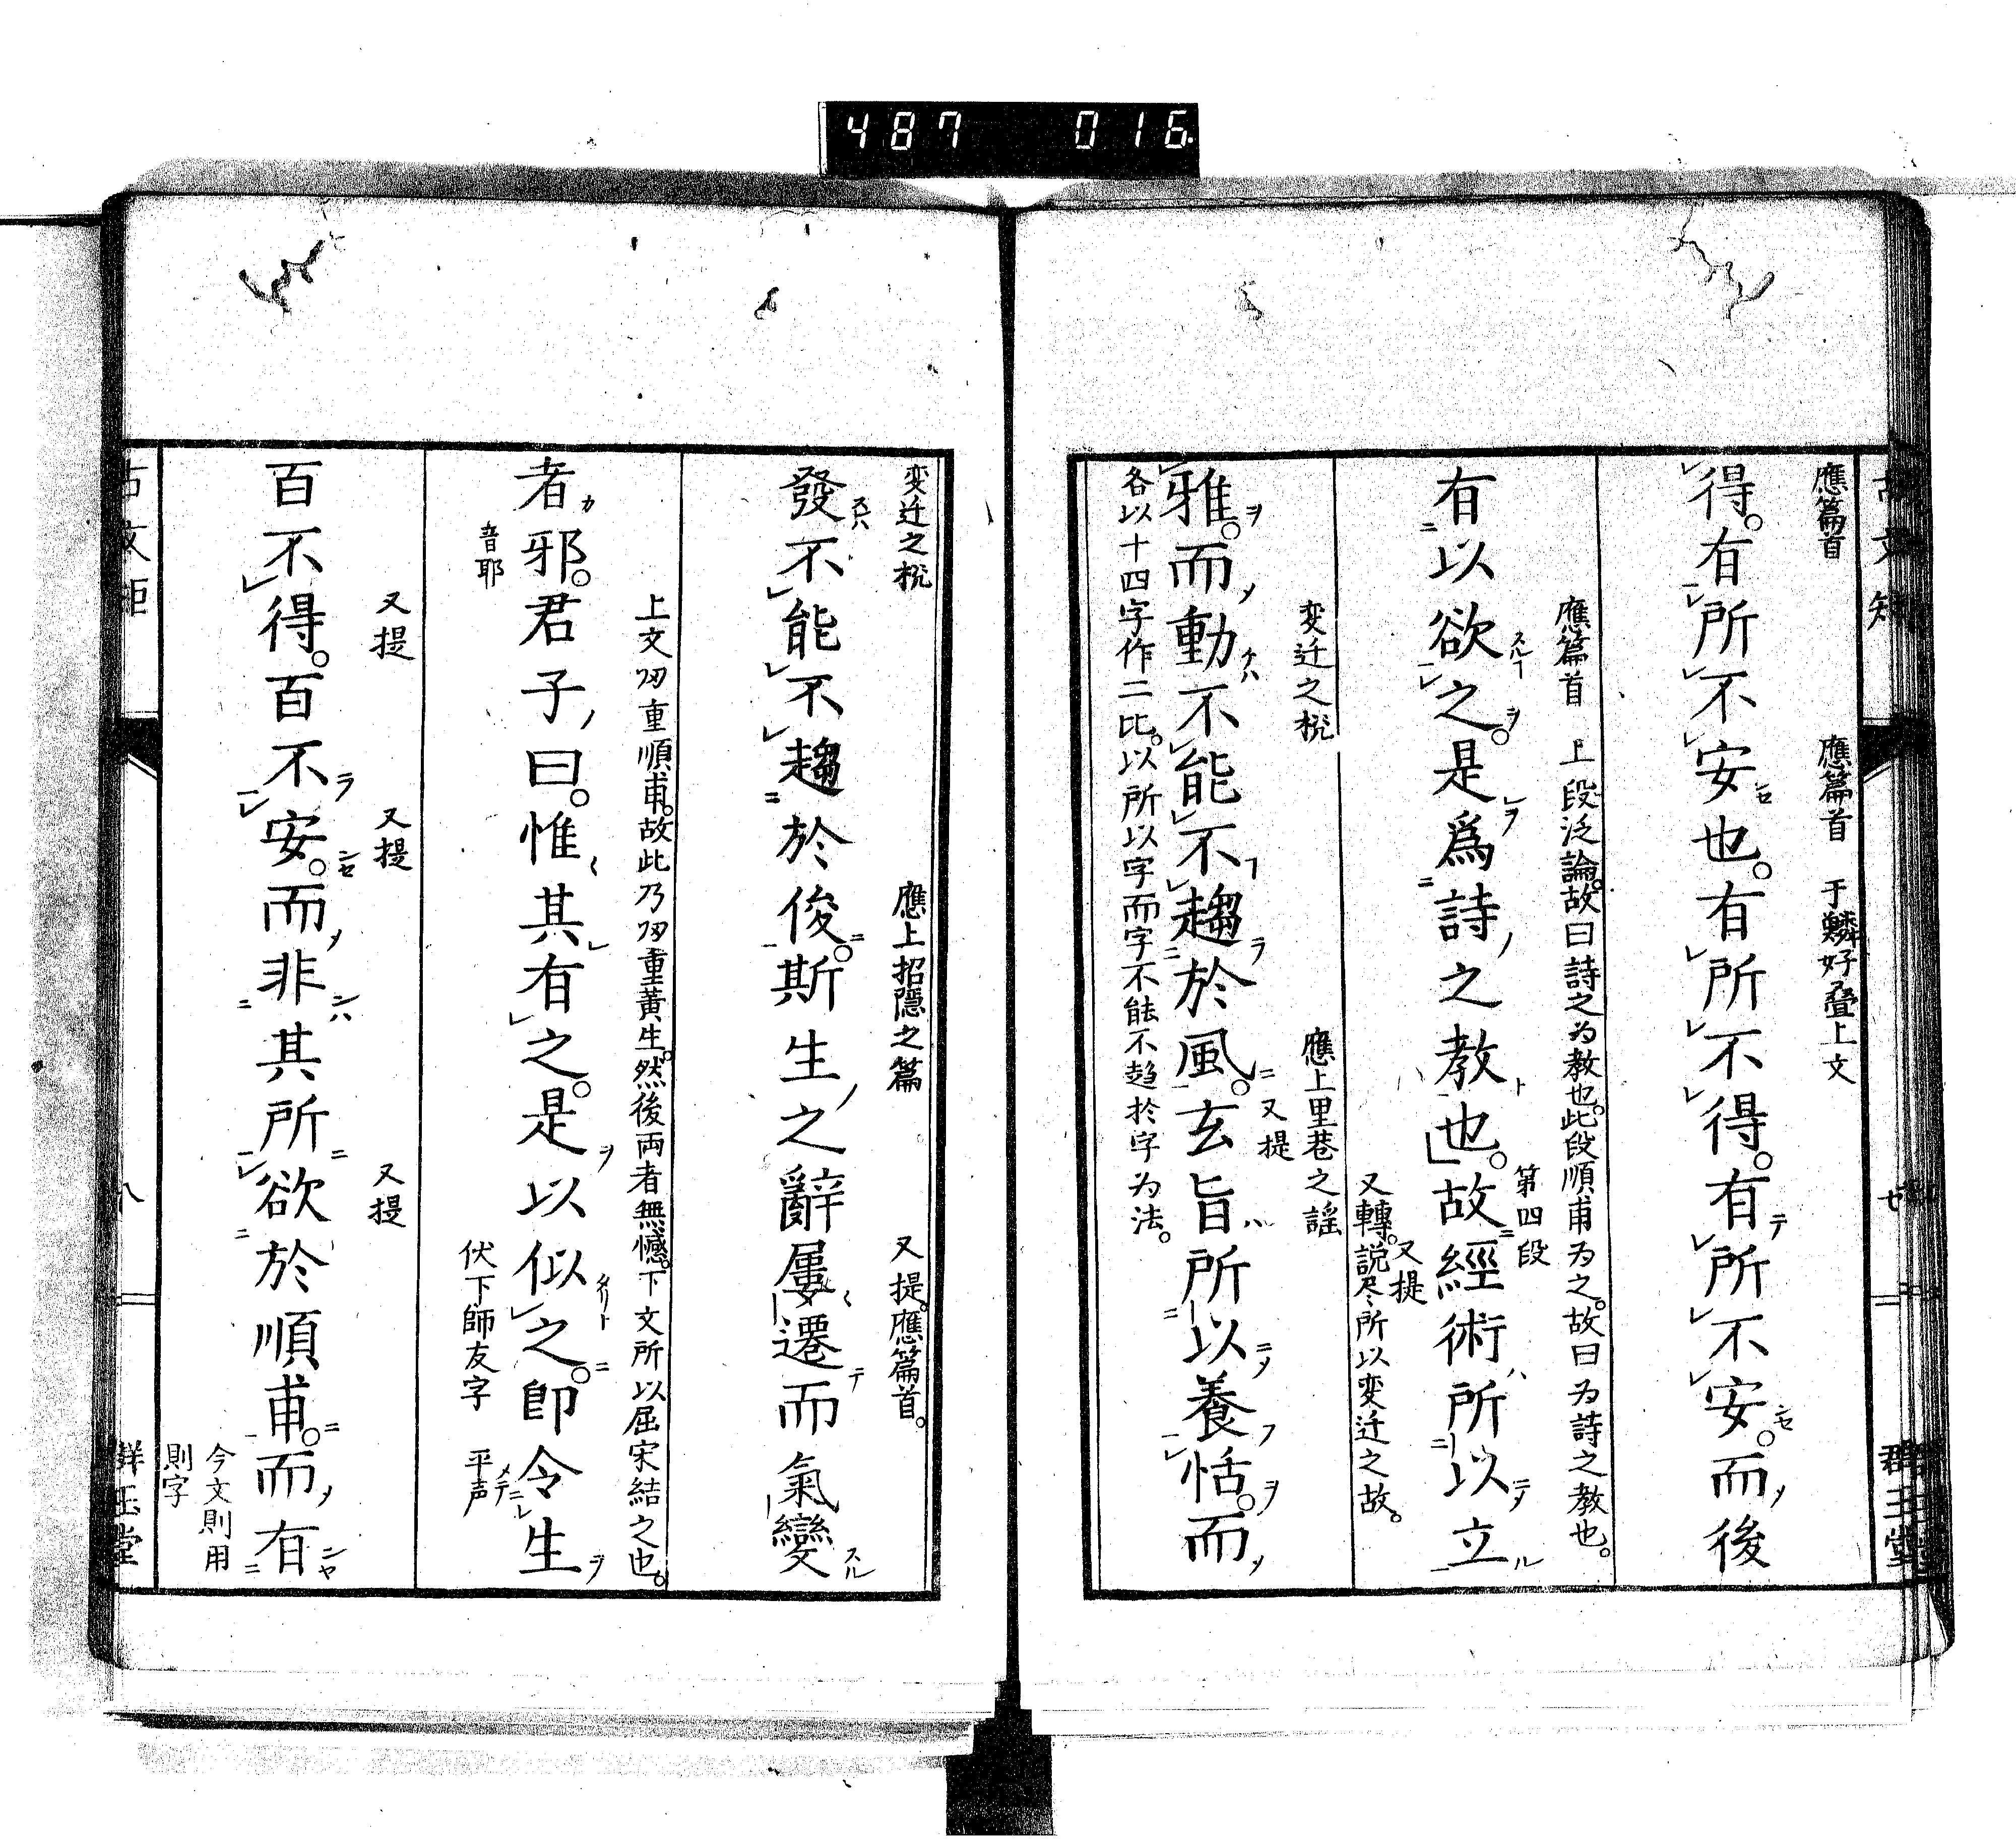 487 016.
應篇首 應篇首 于鱗好疊上文
得。有所不安也。有所不得。有所不安。而後
應篇首 上段泛論。故曰詩之为教也。此段順甫为之。故曰为詩之教也。
有以欲之。是爲詩之教也。故經術所以立
第四段
又提
又轉。説尽所以変迁之故。
変迁之梲 應上里巷之謡
又提
雅。而動不能不趨於風。玄旨所以養恬。而
各以十四字作二比。以所以字而字不能不趋於字为法。
変迁之梲 應上招隱之篇 又提。應篇首。
發不能不趨於俊。斯生之辭屢遷而氣變
上文叨重順甫。故此乃叨重黃生。然後両者無憾。下文所以屈宋結之也。
者邪。君子曰。惟其有之。是以似之。卽令生
音耶 伏下師友字 平声
又提 又提 又提
百不得。百不安。而非其所欲於順甫。而有
今文則用
則字
群玉堂